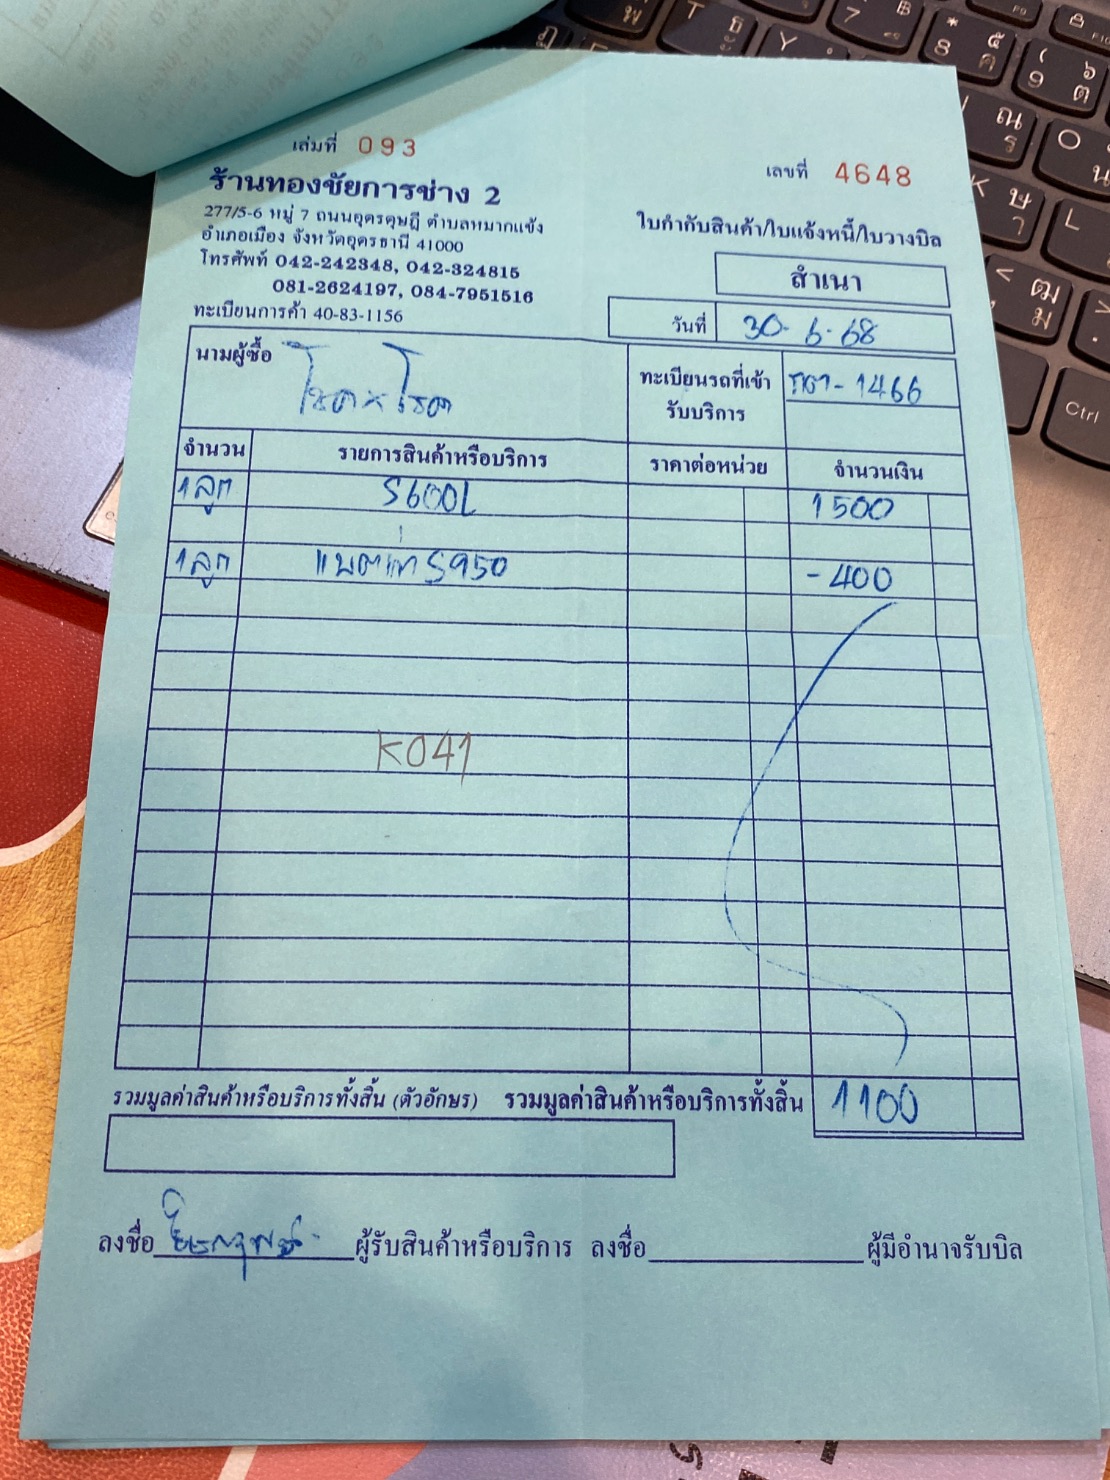 เล่มที่ 093
เลขที่ 4648
ร้านทองชัยการช่าง 2
277/5-6 หมู่ 7 ถนนอุดรดุษฎี ตำบลหมากแข้ง
อำเภอเมือง จังหวัดอุดรธานี 41000
โทรศัพท์ 042-242348, 042-324815
081-2624197, 084-7951516
ทะเบียนการค้า 40-83-1156
ใบกำกับสินค้า/ใบแจ้งหนี้/ใบวางบิล
สำเนา
วันที่ 30-6-68
นามผู้ซื้อ
ทะเบียนรถที่เข้ารับบริการ -1466
จำนวน รายการสินค้าหรือบริการ ราคาต่อหน่วย จำนวนเงิน
1 ลูก S600L 1500
1 ลูก แบตเก่า S950 -400
K041
รวมมูลค่าสินค้าหรือบริการทั้งสิ้น (ตัวอักษร) รวมมูลค่าสินค้าหรือบริการทั้งสิ้น 1100
ลงชื่อ ผู้รับสินค้าหรือบริการ ลงชื่อ ผู้มีอำนาจรับบิล